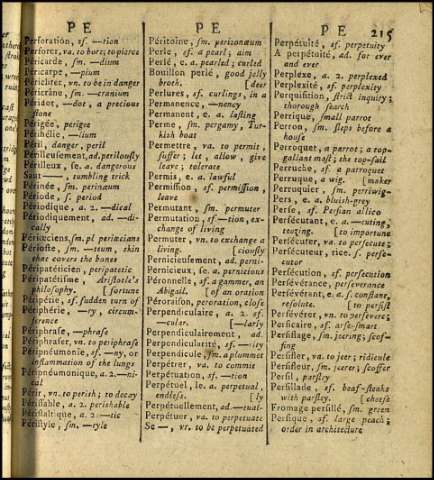 PE
PE
PE 215
Perforation, sf. —tion
Perforer, va. to bore; to pierce
Péricarde, sm. —dium
Péricarpe, —pium
Péricliter, vn. to be in danger
Péricrâne, sm. —cranium
Péridot, —dot, a precious
stone
Périgée, perigee
Périhélie, —lium
Péril, danger, peril
Périlleusement, ad. perilously
Périlleux, se. a. dangerous
Saut —, tumbling trick
Périnée, sm. perinæum
Période, s. period
Périodique, a. 2. —dical
Périodiquement, ad. —di-
cally
Périœciens, sm. pl. periœcians
Périoste, sm. —teum, skin
that covers the bones
Péripatéticien, peripatetic
Péripatétisme, Aristotle's
philosophy. [fortune
Péripétie, sf. sudden turn of
Périphérie, —ry, circum-
ference
Périphrase, —phrase
Périphraser, vn. to periphrase
Péripneumonie, sf. —ny, or
inflammation of the lungs
Péripneumonique, a. 2. —ni-
cal
Périr, vn. to perish; to decay
Périssable, a. 2. perishable
Péristaltique, a. 2. —tic
Péristyle, sm. —style
Péritoine, sm. peritonæum
Perle, sf. a pearl; aim
Perlé, e. a. pearled; curled
Bouillon perlé, good jelly
broth. [deer
Perlures, sf. curlings, in a
Permanence, —nency
Permanent, e. a. lasting
Perme, sm. pergamy, Tur-
kish boat
Permettre, va. to permit,
suffer; let, allow, give
leave; tolerate
Permis, e. a. lawful
Permission, sf. permission,
leave
Permutant, sm. permuter
Permutation, sf. —tion, ex-
change of living
Permuter, vn. to exchange a
living. [ciously
Pernicieusement, ad. perni-
Pernicieux, se. a. pernicious
Péronnelle, sf. a gammer, an
Abigail. [of an oration
Péroraison, peroration, close
Perpendiculaire, a. 2. sf.
—cular. [—larly
Perpendiculairement, ad.
Perpendicularité, sf. —ity
Perpendicule, sm. a plummet
Perpétrer, va. to commit
Perpétuation, sf. —tion
Perpétuel, le. a. perpetual,
endless. [ly
Perpétuellement, ad. —tual-
Perpétuer, va. to perpetuate
Se —, vr. to be perpetuated
Perpétuité, sf. perpetuity
A perpétuité, ad. for ever
and ever
Perplexe, a. 2. perplexed
Perplexité, sf. perplexity
Perquisition, strict inquiry;
thorough search
Perrique, small parrot
Perron, sm. steps before a
house
Perroquet, a parrot; a top-
gallant mast; the top-sail
Perruche, sf. a parroquet
Perruque, a wig. [maker
Perruquier, sm. perriwig-
Pers, e. a. bluish-grey
Perse, sf. Persian calico
Persécutant, e. a. —cuting,
teazing. [to importune
Persécuter, va. to persecute;
Persécuteur, rice. s. perse-
cutor
Persécution, sf. persecution
Persévérance, perseverance
Persévérant, e. a. s. constant,
resolute. [to persist
Persévérer, vn. to persevere;
Persicaire, sf. arse-smart
Persiflage, sm. jeering; scof-
fing
Persifler, va. to jeer; ridicule
Persifleur, sm. jeerer; scoffer
Persil, parsley
Persillade, sf. beaf-steaks
with parsley. [cheese
Fromage persillé, sm. green
Persique, sf. large peach;
order in architecture